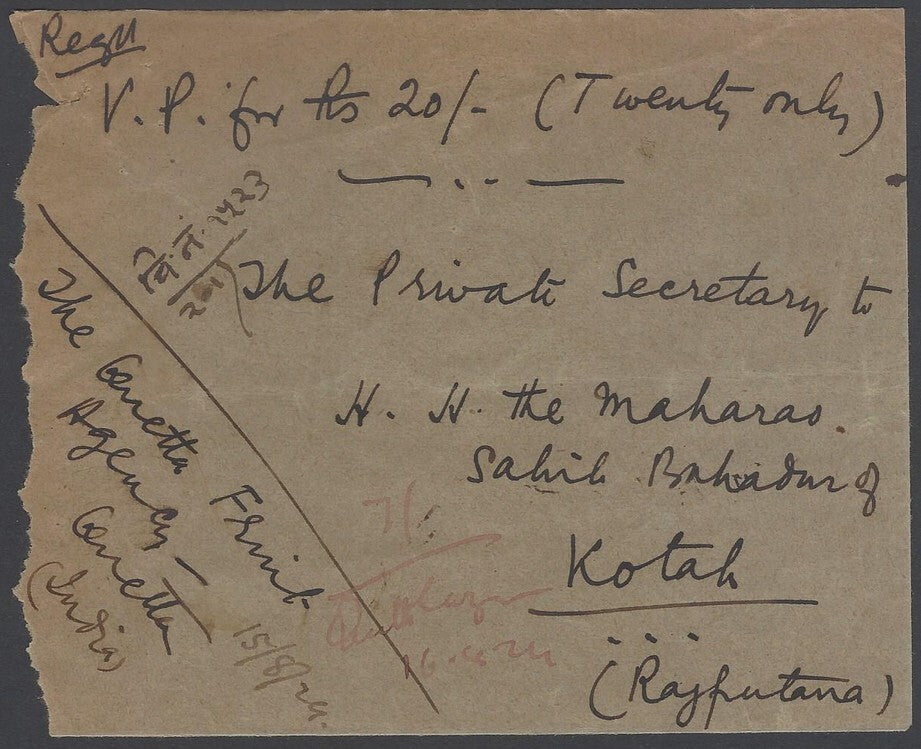 Regd
V. P. for Rs 20/- (Twenty only)
The Private Secretary to
H. H. the Maharao
Sahib Bahadur of
Kotah
(Rajputana)
The Quetta Fruit
Agency
Quetta
(India)
15/8/24